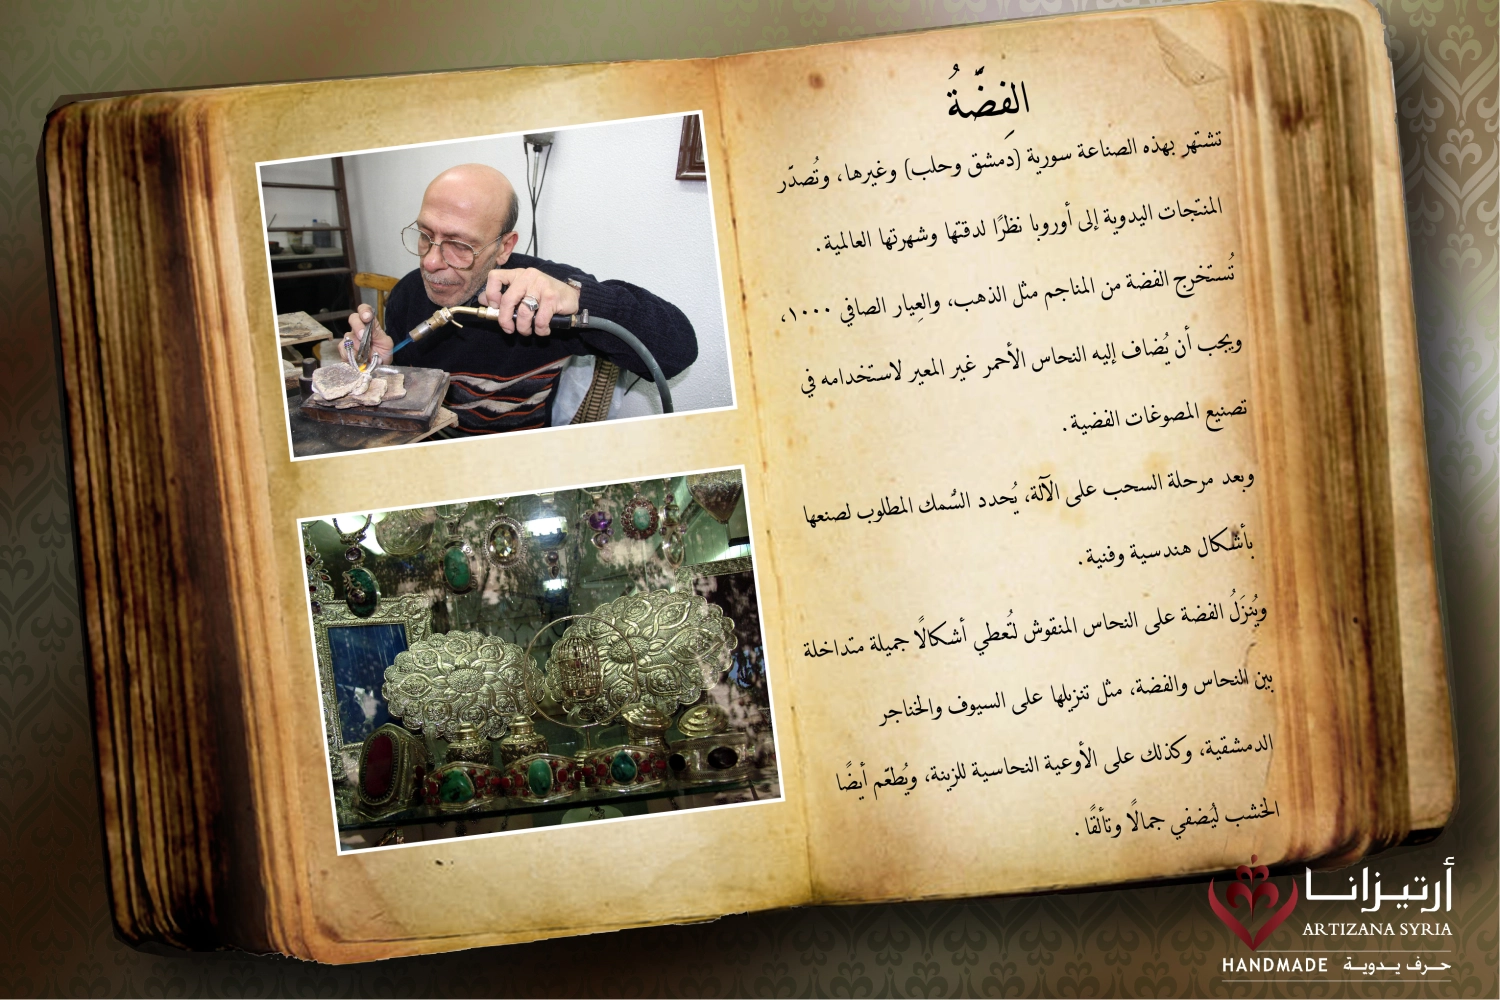 الفِضَّةُ
تشتهر بهذه الصناعة سورية (دَمشق وحلب) وغيرها، وتُصدّر
المنتجات اليدوية إلى أوروبا نظرًا لدقتها وشهرتها العالمية.
تُستخرج الفضة من المناجم مثل الذهب، والعِيار الصافي ١٠٠٠،
ويجب أن يُضاف إليه النحاس الأحمر غير المعير لاستخدامه في
تصنيع المصوغات الفضية.
وبعد مرحلة السحب على الآلة، يُحدد السُمك المطلوب لصنعها
بأشكال هندسية وفنية.
ويُنزَلُ الفضة على النحاس المنقوش لتُعطي أشكالًا جميلة متداخلة
بين النحاس والفضة، مثل تنزيلها على السيوف والخناجر
الدمشقية، وكذلك على الأوعية النحاسية للزينة، ويُطعّم أيضًا
الخشب ليُضفي جمالًا وتألقًا.
أرتيزانا
ARTIZANA SYRIA
HANDMADE حرف يدوية